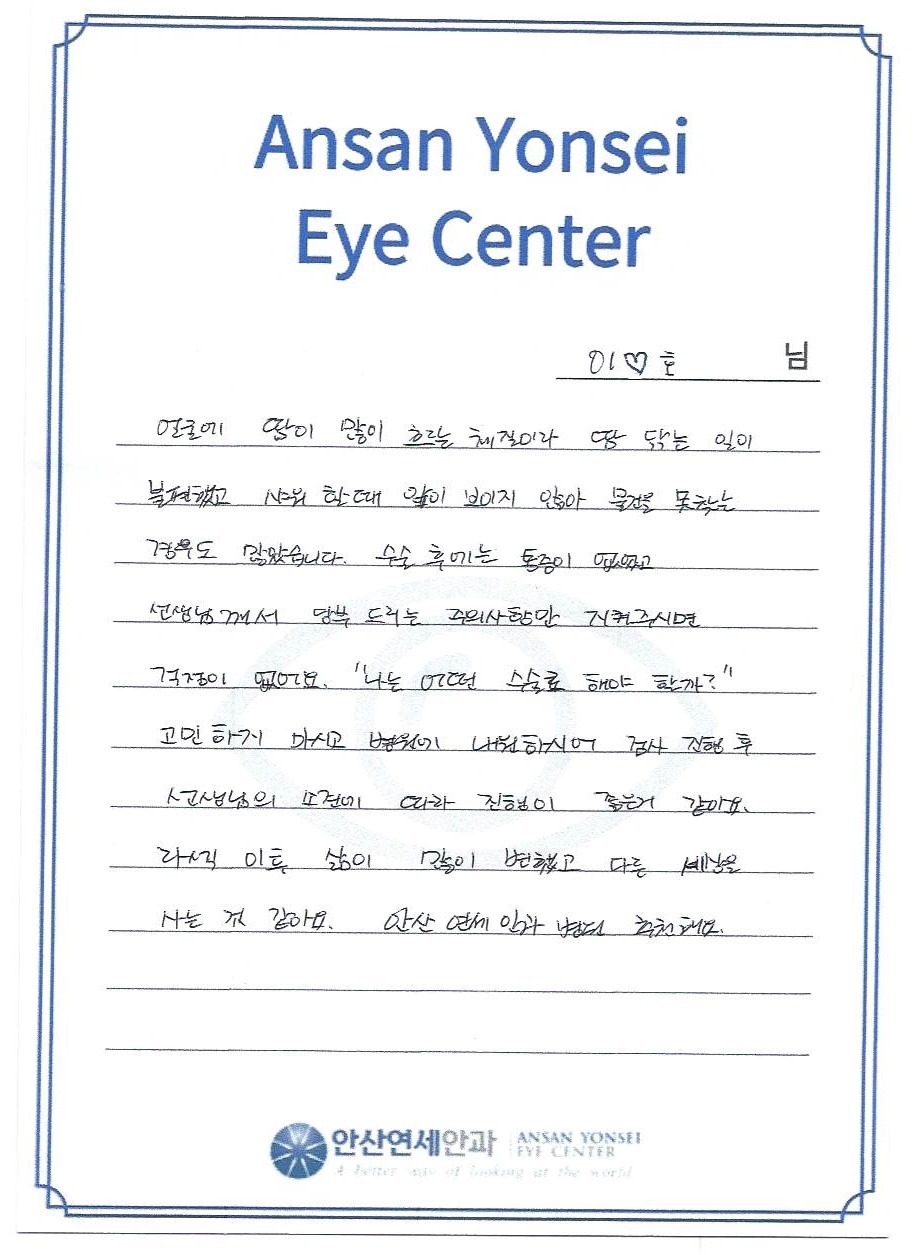 Ansan Yonsei
Eye Center
이♡호 님
얼굴에 땀이 많이 흐르는 체질이라 땀 닦는 일이
불편했고 샤워 할때 앞이 보이지 않아 물건을 못찾는
경우도 많았습니다. 수술 후에는 통증이 없었고
선생님께서 당부 드리는 주의사항만 지켜주시면
걱정이 없어요. "나는 어떤 수술로 해야 할까?"
고민 하게 마시고 병원에 내원하시어 검사 진행 후
선생님의 의견에 따라 진행이 좋은거 같아요.
라식 이후 삶이 많이 변했고 다른 세상을
사는 것 같아요. 안산 연세 안과 병원 추천해요.
안산연세안과 ANSAN YONSEI
EYE CENTER
A better way of looking at the world